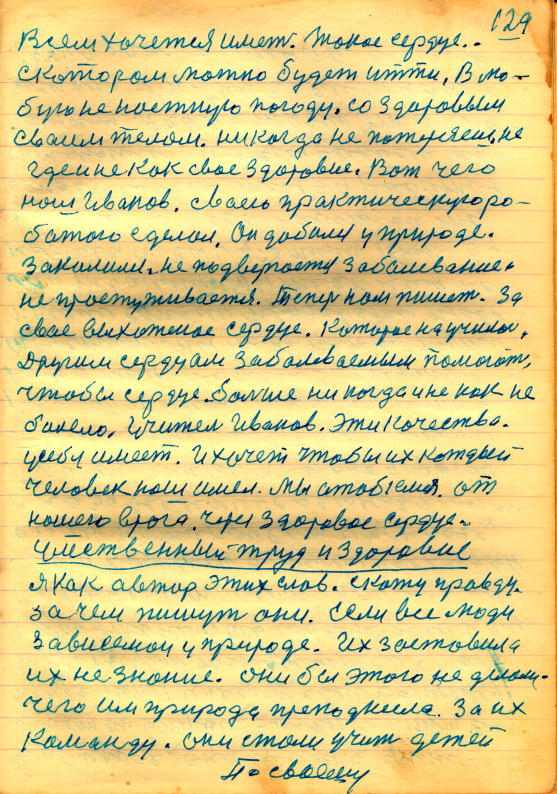 129
Всем хочется имет. Такое сердце..
с котором можно будет итти, В лю-
бую не настную погоду. со здоровым
сваим телом. никогда не потеряеш, не
где и не как свое здоровие. Вот чего
наш Иванов. сваею практическую ро-
ботого сделал, Он добилса у природе.
Закалили. не подвергается заболевание.
не простуживается. Тепер нам пишет. За
свае выхоженое сердце. Которое научилос,
другим сердцам заболеваемым помогат,
чтобы сердце. болше ни когда и не как не
болело, Учител Иванов. Эти качества.
у себя имеет. И хочет чтобы их каждый
человек наш имел. Мы отобемся. от
нашего врога. через здоровое сердце.
Умственный труд и здоровие
Я как автор этих слов. скажу правду.
За чем пишут они. если все люди
зависемои у природе. Их заставила
их не знание. они бы этого не делали.
чего им природа преподнесла. За их
команду. они стали учит детей
По своему